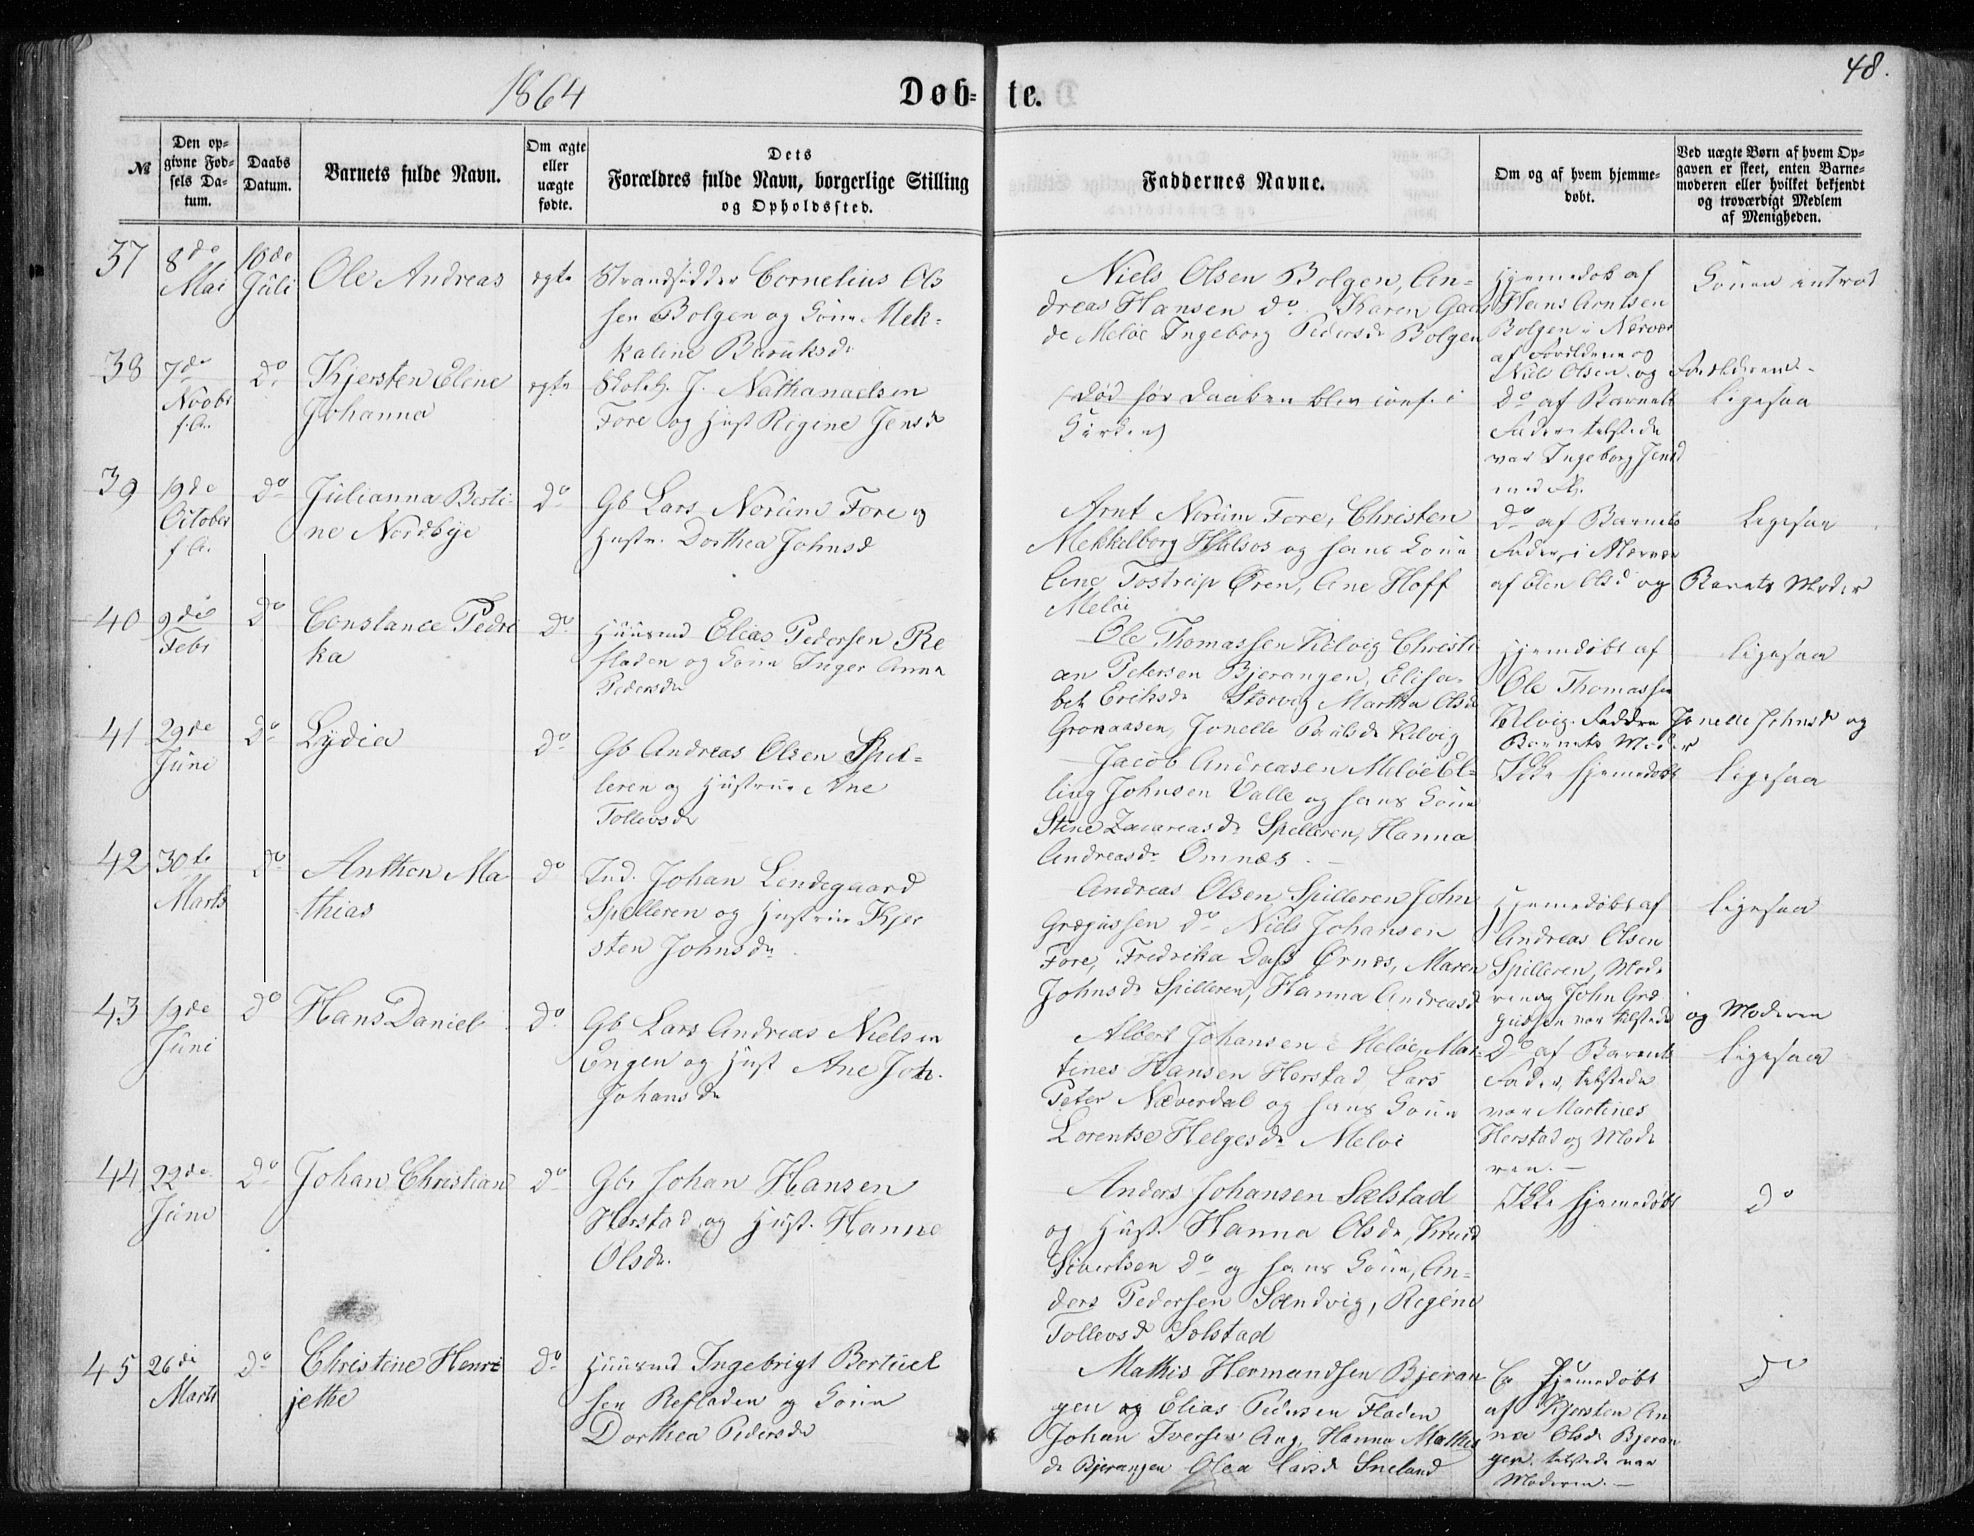 1864
Døb-te.
48.
№
Den op-
givne Fød-
sels Da-
tum.
Daabs
Datum.
Barnets fulde Navn.
Om ægte
eller
uægte
fødte.
Dets
Forældres fulde Navn, borgerlige Stilling
og Opholdssted.
Faddernes Navne.
Om og af hvem hjemme-
døbt.
Ved uægte Børn af hvem Op-
gaven er skeet, enten Barne-
moderen eller hvilket bekjendt
og troværdigt Medlem
af Menigheden.
37
8de
Mai
10de
Juli
Ole Andreas
ægte
Strandsidder Cornelius Ol-
sen Bolgen og Kone Mek-
kaline Baruksd
Niels Olsen Bolgen, An-
dreas Hansen do Karen
de Meløe Ingeborg Pedersd Bolgen
Hjemmedøb af
Hans Arntsen
Bolgen i Nærvær
af Forældrene og
Niels Olsen og Forældrene
Konen introd
38
7de
Novbr
f.A.
do
Kjersten Eline
Johanna
ægte
J. Nathanaelsen
Fore og Hust Regine Jensd
(Død før Daaben blev conf. i
Kirken)
do af Barnets
Fader tilstede
var Ingeborg Jensd
ligesaa
39
19de
October
f.A.
do
Julianna Berti-
ne Nordbye
do
Gb Lars Norum Fore og
Hustr. Dorthea Johnsd
Arnt Norum Fore, Christen
Mekkelborg Halsos og hans Kone
Ane Tostrup Øren, Ane Hoff
Meløe
do af Barnets
Fader, i Nærvær
af Elen Olsd og Barnets Moder
Ligesaa
40
9de
Febr
do
Constance Pedri
ka
do
Huusmd Elias Pedersen Re
fladen og Kone Inger Anna
Pedersd
Ole Thomassen Kilvig Christi
an Petersen Bjerangen, Elisa-
bet Eriksd Storvig Martha Olsd
Gronaasen, Jonelle Paulsd Kilvig
Hjemdøbt af
Ole Thomassen
Kilvig. Faddre Jonelle Johnsd og
Barnets Moder
ligesaa
41
29de
Juni
do
Lydia
do
Gb Andreas Olsen Spil-
leren og Hustrue Ane
Tollevsd
Jacob Andreasen Meløe El-
ling Johnsen Valle og hans Kone
Stine Zacareasd Spilleren, Hanna
Andreasd Omnæs.
Ikke hjemedøbt
ligesaa
42
30te
Marts
do
Anthon Ma-
thias
do
Ind. Johan Lendegaard
Spilleren og Hustrue Kjer
sten Johnsd
Andreas Olsen Spilleren John
Gregussen do Niels Johansen
Fore, Fredrika Dass Ørnes, Maren
Johnsd Spilleren, Hanna Andreasd
Hjemedøbt af
Andreas Olsen
Spilleren, Mode
ren og John Gre
gussen var tilstede
og Moderen
ligesaa
43
19de
Juni
do
Hans Daniel
do
Gb Lars Andreas Nielsen
Engen og Hust Ane Joh.
Johansd
Albert Johansen Meløe, Mar-
tines Hansen Herstad Lars
Peter Næverdal og hans Kone
Lorentse Helgesd Meløe
do af Barnets
Fader, tilstede
var Martines
Herstad og Mode
ren.
ligesaa
44
22de
Juni
do
Johan Christian
do
Gbr Johan Hansen
Herstad og Hust. Hanne
Olsd.
Anders Johansen Sælstad
og Hust. Hanna Olsd, Knud
Sivertsen do og hans Kone, An-
ders Pedersen Sandvig, Regine
Tollevsd Solstad
Ikke hjemedøbt
do
45
26de
Marts
do
Christine Henri
jette
do
Huusmd Ingebrigt Bertüel
sen Refladen og Kone
Dorthea Pedersd
Mathis Hermandsen Bjeran
gen og Elias Pedersen Fladen
Johan Iversen Ang. Hanna Mathis
d. Bjerangen Olea Larsd Sneland
Er hjemedøbt
af Kjersten An
na Olsd Bjeran
gen. tilstede var
Moderen.
do